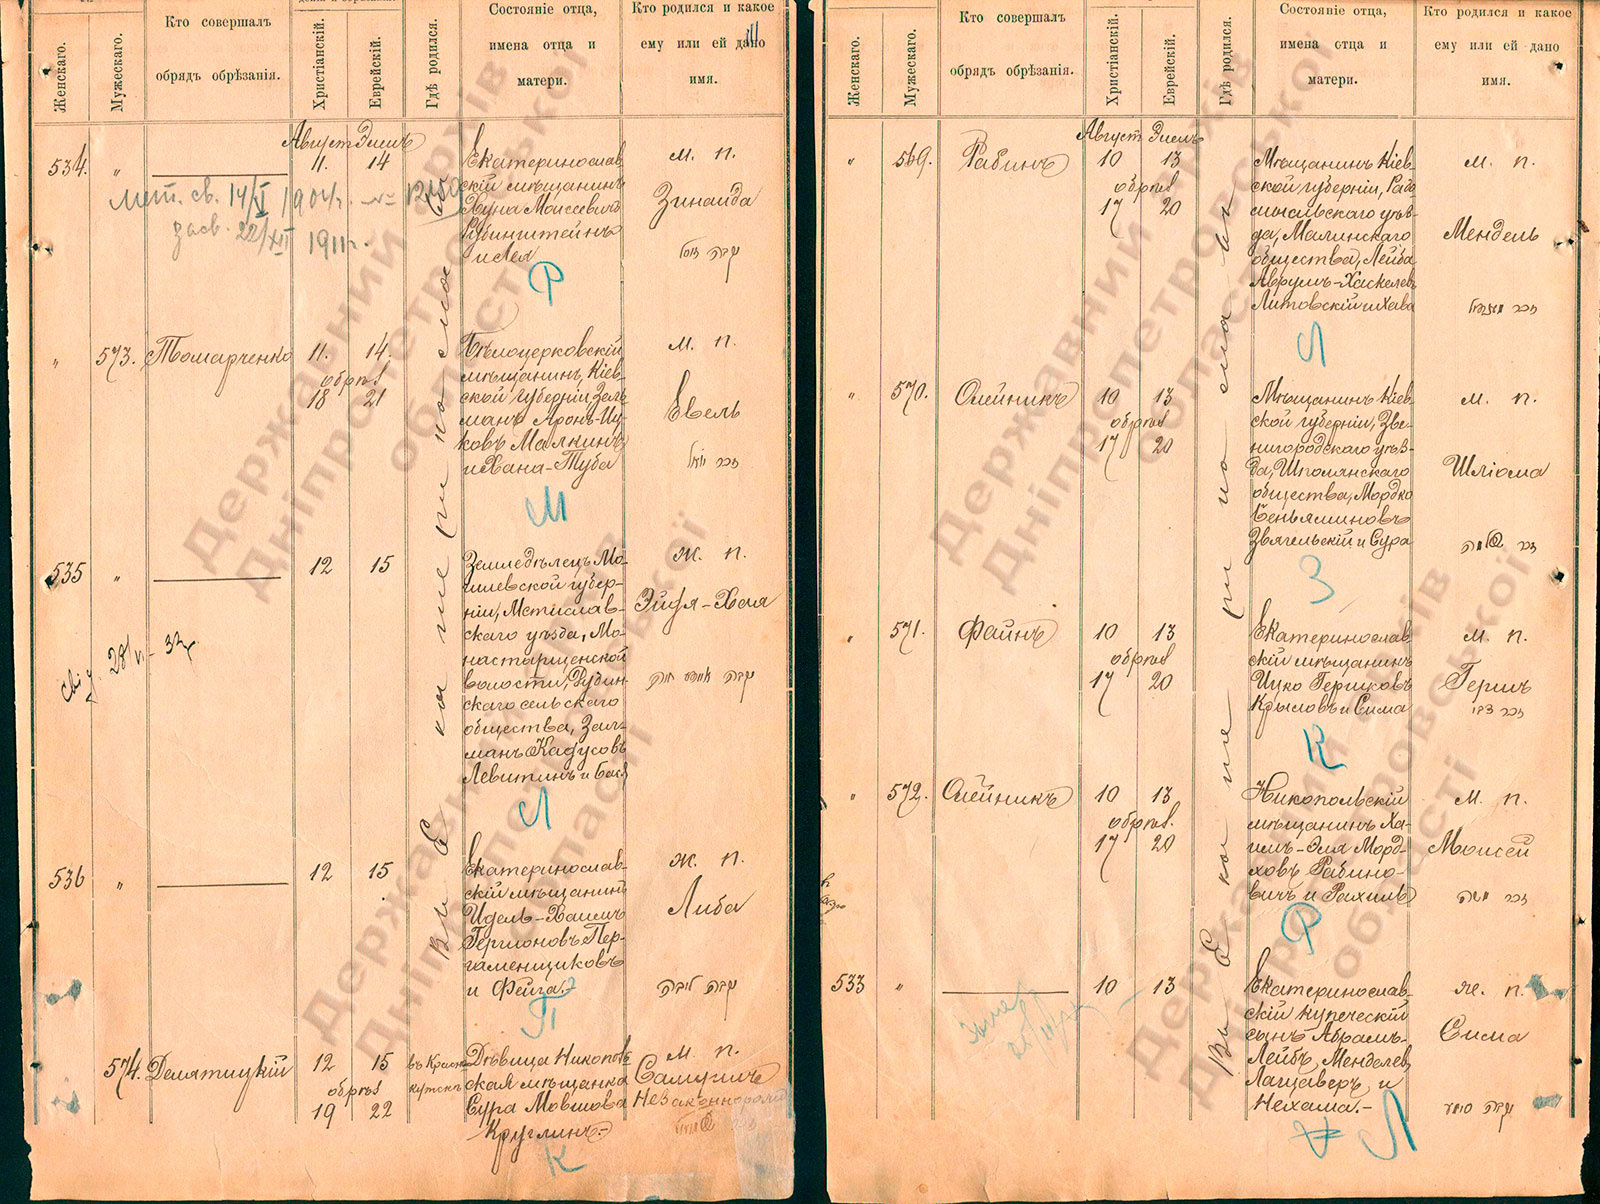 Женскаго.
Мужескаго.
Кто совершалъ
обрядъ обрѣзанія.
Христіанскій.
Еврейскій.
Гдѣ родился.
Состояніе отца,
имена отца и
матери.
Кто родился и какое
ему или ей дано
имя.
Август Элемъ
534. " 11. 14
Екатеринослав-
скій мѣщанинъ
Моисеевичъ
Рубинштейнъ
и Лея
м. п.
Зинаида
Мет. св. 14/XI 1904 г. № 12150
засв. 22/XII 1911 г.
Р
" 573. Томарченко 11. 14.
обрѣз
18 21
Бѣлоцерковскій
мѣщанин, Кіев-
ской губерніи, Зель-
манъ Аронъ-Иц-
ковъ Малкинъ
и Хана-Туба
м. п.
Евель
М
535 " 12 15
Земледѣлецъ Мо-
гилевской губер-
ніи, Мстислав-
скаго уѣзда, Мо-
настырщенской
волости,
скаго сельскаго
общества, Зал-
манъ
Левитинъ и Бася
ж. п.
Эйдя-Хая
28/VI - 32 г.
Л
536 " 12 15
Екатеринослав-
скій мѣщанинъ
Идель-Хаимъ
Гершоновъ Пер-
гаменщиковъ
и Фейга.
ж. п.
Либа
קבה ליבה
П
574. Делятицкій 12 15
обрѣз
19 22
въ Красно-
кутскѣ
Дѣвица Никополь-
ская мѣщанка
Сура Мовшова
Круглинъ.-
м. п.
Самуилъ
Незаконнорожд
К
Въ Екатеринославѣ
Женскаго.
Мужескаго.
Кто совершалъ
обрядъ обрѣзанія.
Христіанскій.
Еврейскій.
Гдѣ родился.
Состояніе отца,
имена отца и
матери.
Кто родился и какое
ему или ей дано
имя.
Август Элемъ
" 569. Рабинъ 10 13
обрѣз
17 20
Мѣщанинъ Кіев-
ской губерніи, Радо-
мысльскаго уѣз-
да, Малинскаго
общества, Лейба
Аврумъ-Хаскелев
Литовскій и Хава
м. п.
Мендель
Л
" 570. Олейникъ 10 13
обрѣз
17 20
Мѣщанинъ Кіев-
ской губерніи, Зве-
нигородскаго уѣз-
да, Шполянскаго
общества, Мордко
Беньяминовъ
Звягельскій и Сура
м. п.
Шліома
З
" 571. Файнъ 10 13
обрѣз
17 20
Екатеринослав-
скій мѣщанинъ
Ицко Гершковъ
Крыловъ и Сима
м. п.
Гершъ
זכר צבי
К
" 572. Олейникъ 10 13
обрѣз.
17 20
Никопольскій
мѣщанинъ Ха-
имъ-Эля Морд-
ховъ Рабино-
вичъ и Рахиль
м. п.
Моисей
זכר משה
Р
533 " 10 13
Екатеринослав-
скій купеческій
сынъ Абрамъ-
Лейбъ, Менделев
Лащаверъ, и
Нехама.-
же. п.
Сима
Л
Въ Екатеринославѣ
Державний архів
Дніпропетровської
області